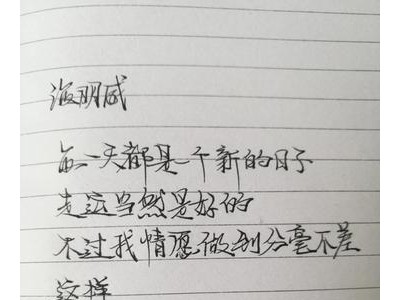 海明威
每一天都是一个新的日子
走运当然是好的
不过我情愿做到分毫不差
这样